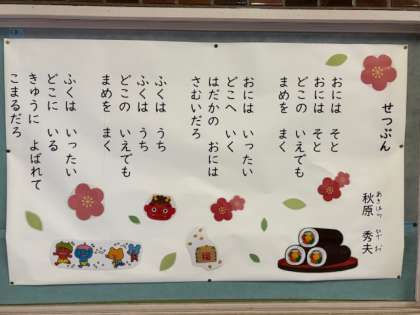 せつぶん
秋原 秀夫
おには そと
おには そと
どこの いえでも
まめを まく
おには いったい
どこへ いく
はだかの おには
さむいだろ
ふくは うち
ふくは うち
どこの いえでも
まめを まく
ふくは いったい
どこに いる
きゅうに よばれて
こまるだろ
福